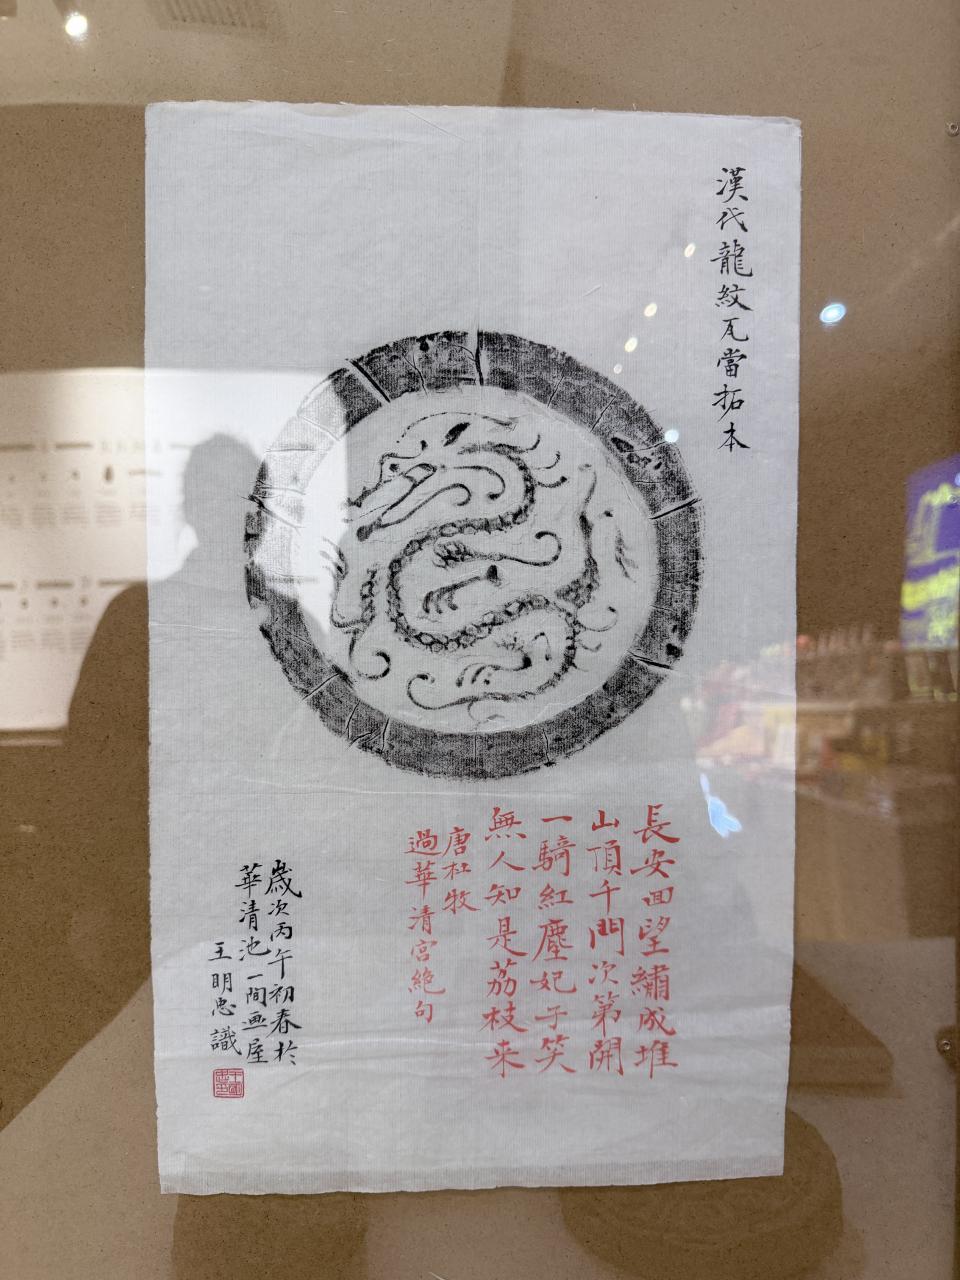 漢代龍紋瓦當拓本
長安回望繡成堆
山頂千門次第開
一騎紅塵妃子笑
無人知是荔枝来
唐杜牧
過華清宮絶句
歲次丙午初春於
華清池一間画屋
王明忠識